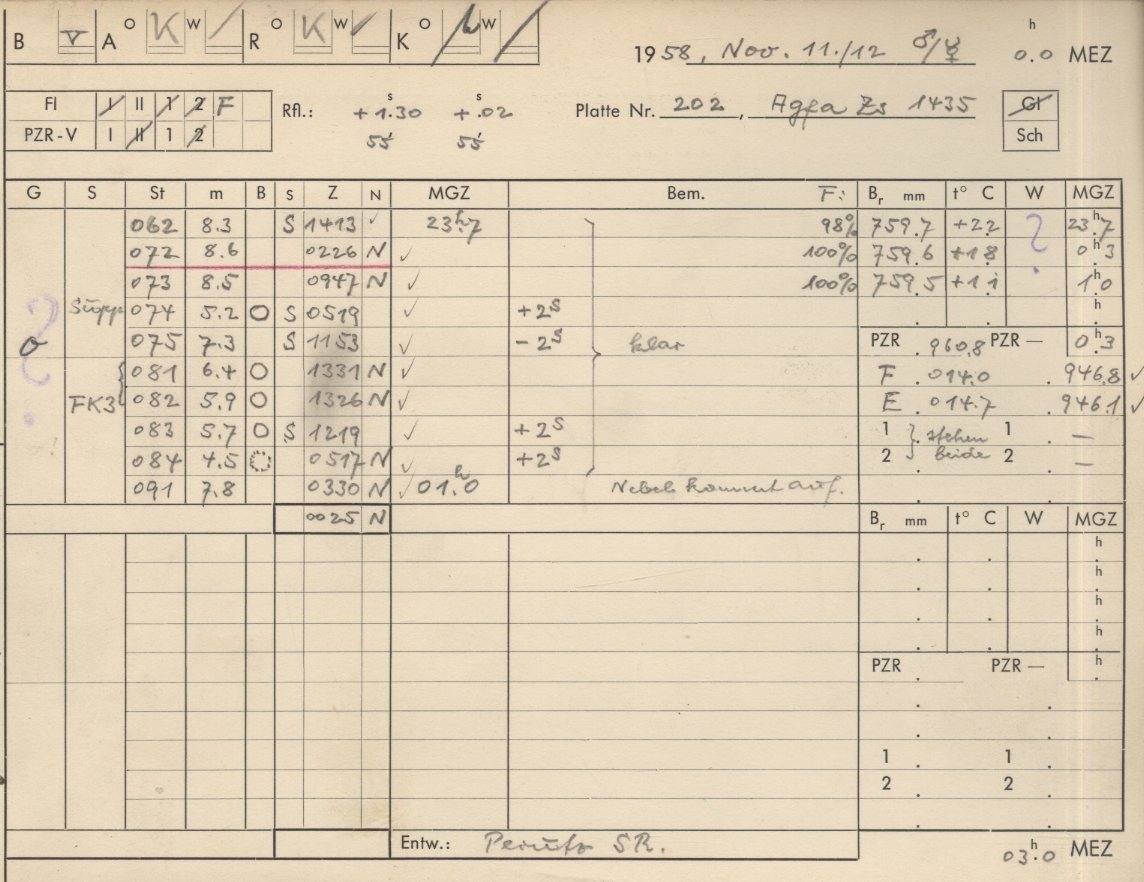 B V A O K W / R O K W ✓ K O W /
1958, Nov. 11./12 ♂/☿ 0.0 h MEZ
Fl I II 1 2 F
PZR-V I II 1 2
Rfl.: +1.30 s +.02 s
55 55
Platte Nr. 202, Agfa Zs 1435
Gl
Sch
G S St m B S Z N MGZ Bem. F: Br mm t° C W MGZ
062 8.3 S 1413 ✓ 23h.7 98% 759.7 +2.2 ? 23h.7
072 8.6 0226 N ✓ 100% 759.6 +1.8 0h.3
073 8.5 0947 N ✓ 100% 759.5 +1.1 1h.0
074 5.2 O S 0519 ✓ +2s . . h.
σ 075 7.3 S 1153 ✓ -2s klar PZR 960.8 PZR — 0h.3
081 6.4 O 1331 N ✓ F 014.0 946.8 ✓
FK3 082 5.9 O 1326 N ✓ E 014.7 946.1 ✓
083 5.7 O S 1219 ✓ +2s 1 } stehen 1 . —
084 4.5 O 0517 N ✓ +2s 2 } beide 2 . —
091 7.8 0330 N ✓ 01h.0 Nebel kommt auf.
0025 N Br mm t° C W MGZ
h
h
h
h
PZR PZR — h
1 1
2 2
Entw.: Perutz SR.
03h.0 MEZ